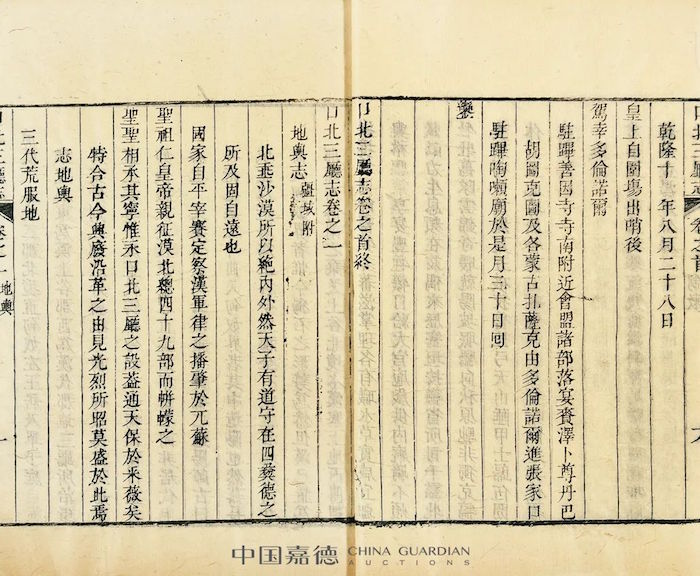 乾隆十年八月二十八日
皇上自圍塲出哨後
駕幸多倫諾爾
駐蹕善因寺寺南附近會盟諸部落宴賚澤卜尊丹巴
胡圖克圖及各蒙古扎薩克由多倫諾爾進張家口
駐蹕陶嚬廟於是月三十日回
鑾
口北三廳志卷之首終
口北三廳志卷之一
地輿志 疆域附
北垂沙漠所以絶内外然天子有道守在四彞德之
所及固自遠也
國家自平宰賽定察漢軍律之播肇於兀蘇
聖祖仁皇帝親征漠北總四十九部而帡幪之
聖聖相承其寧惟永口北三廳之設葢通天保於采薇矣
特合古今興廢沿革之由見光烈所昭莫盛於此焉
志地輿
三代荒服地
口北三廳志 卷之一 地輿 一
中国嘉德 CHINA GUARDIAN
AUCTIONS